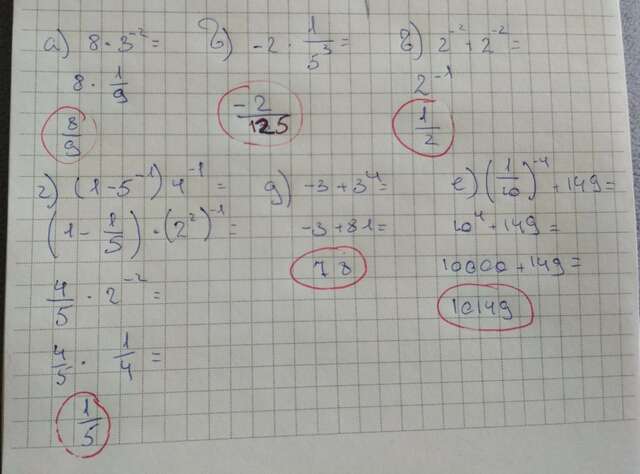 а) 8 · 3⁻² =
8 · 1/9
8/9
б) -2 · 1/5³ =
-2/125
в) 2⁻² + 2⁻² =
2⁻¹
1/2
г) (1 - 5⁻¹) 4⁻¹ =
(1 - 1/5) · (2²)⁻¹ =
4/5 · 2⁻² =
4/5 · 1/4 =
1/5
д) -3 + 3⁴ =
-3 + 81 =
78
е) (1/10)⁻⁴ + 149 =
10⁴ + 149 =
10000 + 149 =
10149